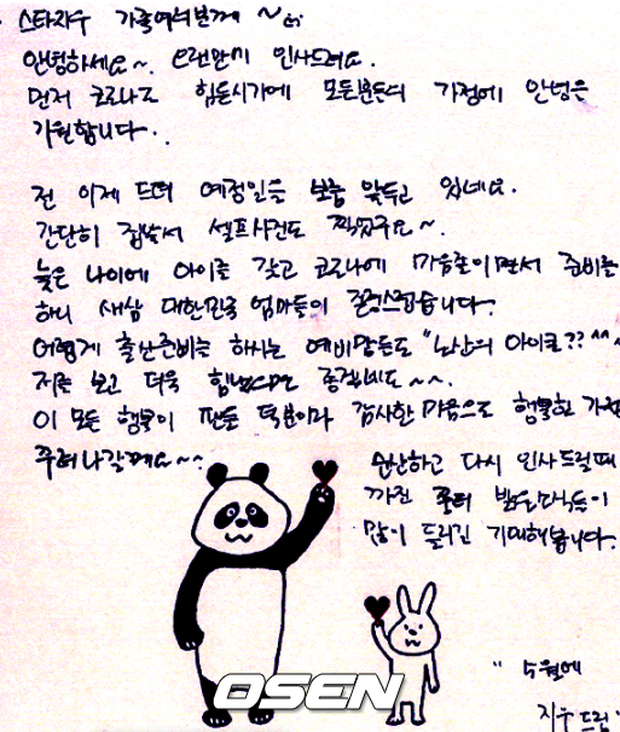 스타지우 가족여러분께 ~
안녕하세요~. 오랜만에 인사드려요.
먼저 코로나로 힘든시기에 모든분들의 가정에 안녕을
기원합니다.
전 이제 드뎌 예정일을 보름 앞두고 있네요.
간단히 집에서 셀프사진도 찍었구요~.
늦은 나이에 아이를 갖고 코로나에 마음졸이면서 준비를
하니 새삼 대한민국 엄마들이 존경스럽습니다.
어렵게 출산준비를 하시는 예비맘들도 "노산의 아이콘?? ^^~
저를 보고 더욱 힘내시면 좋겠네요~~.
이 모든 행복이 팬분 덕분이라 감사한 마음으로 행복한 가정
꾸려나갈께요~~.
순산하고 다시 인사드릴때
까진 좋은 밝은소식들이
많이 들리길 기대해봅니다.
OSEN
" 5월에
지우드림 "